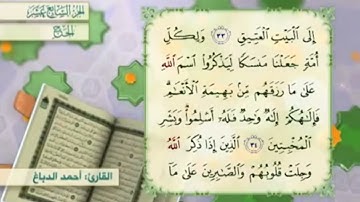 الجزء السابع عشر
الحج
إِلَى ٱلْبَيْتِ ٱلْعَتِيقِ ٣٣ وَلِكُلِّ
أُمَّةٍ جَعَلْنَا مَنسَكًا لِّيَذْكُرُوا۟ ٱسْمَ ٱللَّهِ
عَلَىٰ مَا رَزَقَهُم مِّنۢ بَهِيمَةِ ٱلْأَنْعَـٰمِ
فَإِلَـٰهُكُمْ إِلَـٰهٌ وَٰحِدٌ فَلَهُۥٓ أَسْلِمُوا۟ وَبَشِّرِ
ٱلْمُخْبِتِينَ ٣٤ ٱلَّذِينَ إِذَا ذُكِرَ ٱللَّهُ
وَجِلَتْ قُلُوبُهُمْ وَٱلصَّـٰبِرِينَ عَلَىٰ مَآ
القارئ: أحمد الدباغ